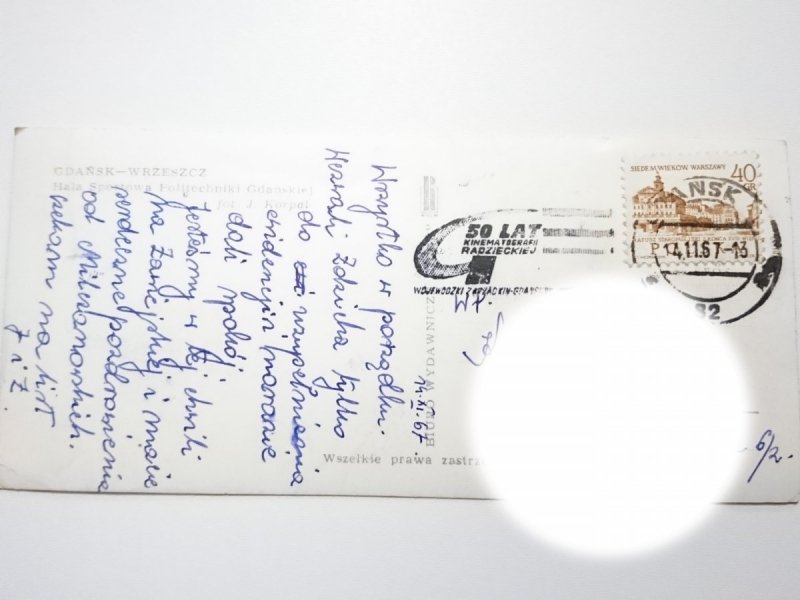 GDAŃSK—WRZESZCZ
Hala Sportowa Politechniki Gdańskiej
fot. J. Korpal
Wszystko w porządku.
Wezwali Zdzicha tylko
do uzupełnienia
ewidencji i narazie
dali spokój.
Jesteśmy w tej chwili
na Zawiejskiej i macie
serdeczne pozdrowienia
od Milczanowskich.
Czekam na list
Z i Z.
14.XI.67.
BIURO WYDAWNICZE
Wszelkie prawa zastrz
50 LAT
KINEMATOGRAFII
RADZIECKIEJ
WOJEWÓDZKI ZARZĄD KIN-GDAŃSK
SIEDEM WIEKÓW WARSZAWY
40
GR
GDAŃSK
14.11.67-13
82
WP.
6/2.